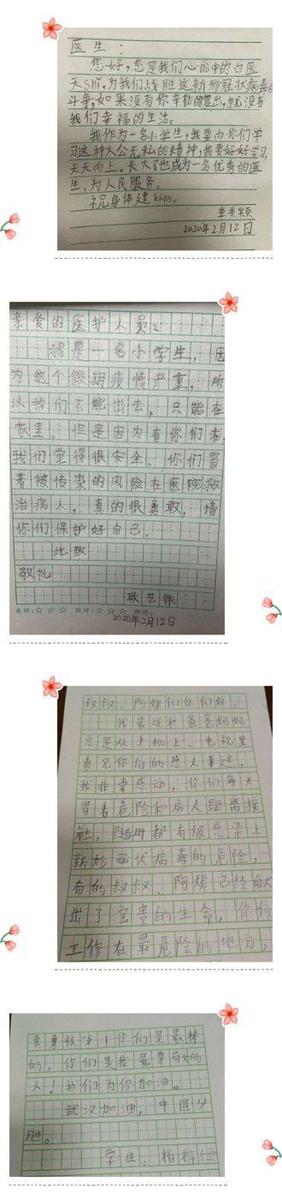 医生：
您好，您是我们心目中的白医
天shǐ，为我们战胜这新型冠状病毒的
斗争，如果没有你辛勤的付出，就没有
我们幸福的生活。
我作为一名小学生，我要向你们学
习这种大公无私的精神，我要好好学习，
天天向上。长大了也成为一名优秀的医
生，为人民服务。
祝身体建kāng。
2020年2月12日
亲爱的医护人员：
我是一名小学生，因
为这个假期疫情严重，所
以我们不能出去，只能在
家里。但是因为有你们在，
我们觉得很安全。你们冒
着被传染的风险在医院救
治病人，真的很勇敢，请
你们保护好自己。
此致
敬礼
2020年2月12日
叔叔、阿姨们你们好：
我最近和爸爸妈妈
总是从手机上、电视里
看见你们的感人事迹，
我非常感动，你们每天
冒着危险和病人距离接
触，随时都有被感染上
新形冠状病毒的危险，
有的叔叔、阿姨已经献
出了宝贵的生命，你们
工作在最危险的地方，
真勇敢！你们是最棒
的，你们是我最尊敬的
人！我们为你加油。
武汉加油，中国加
油。
学生：柏梓恒